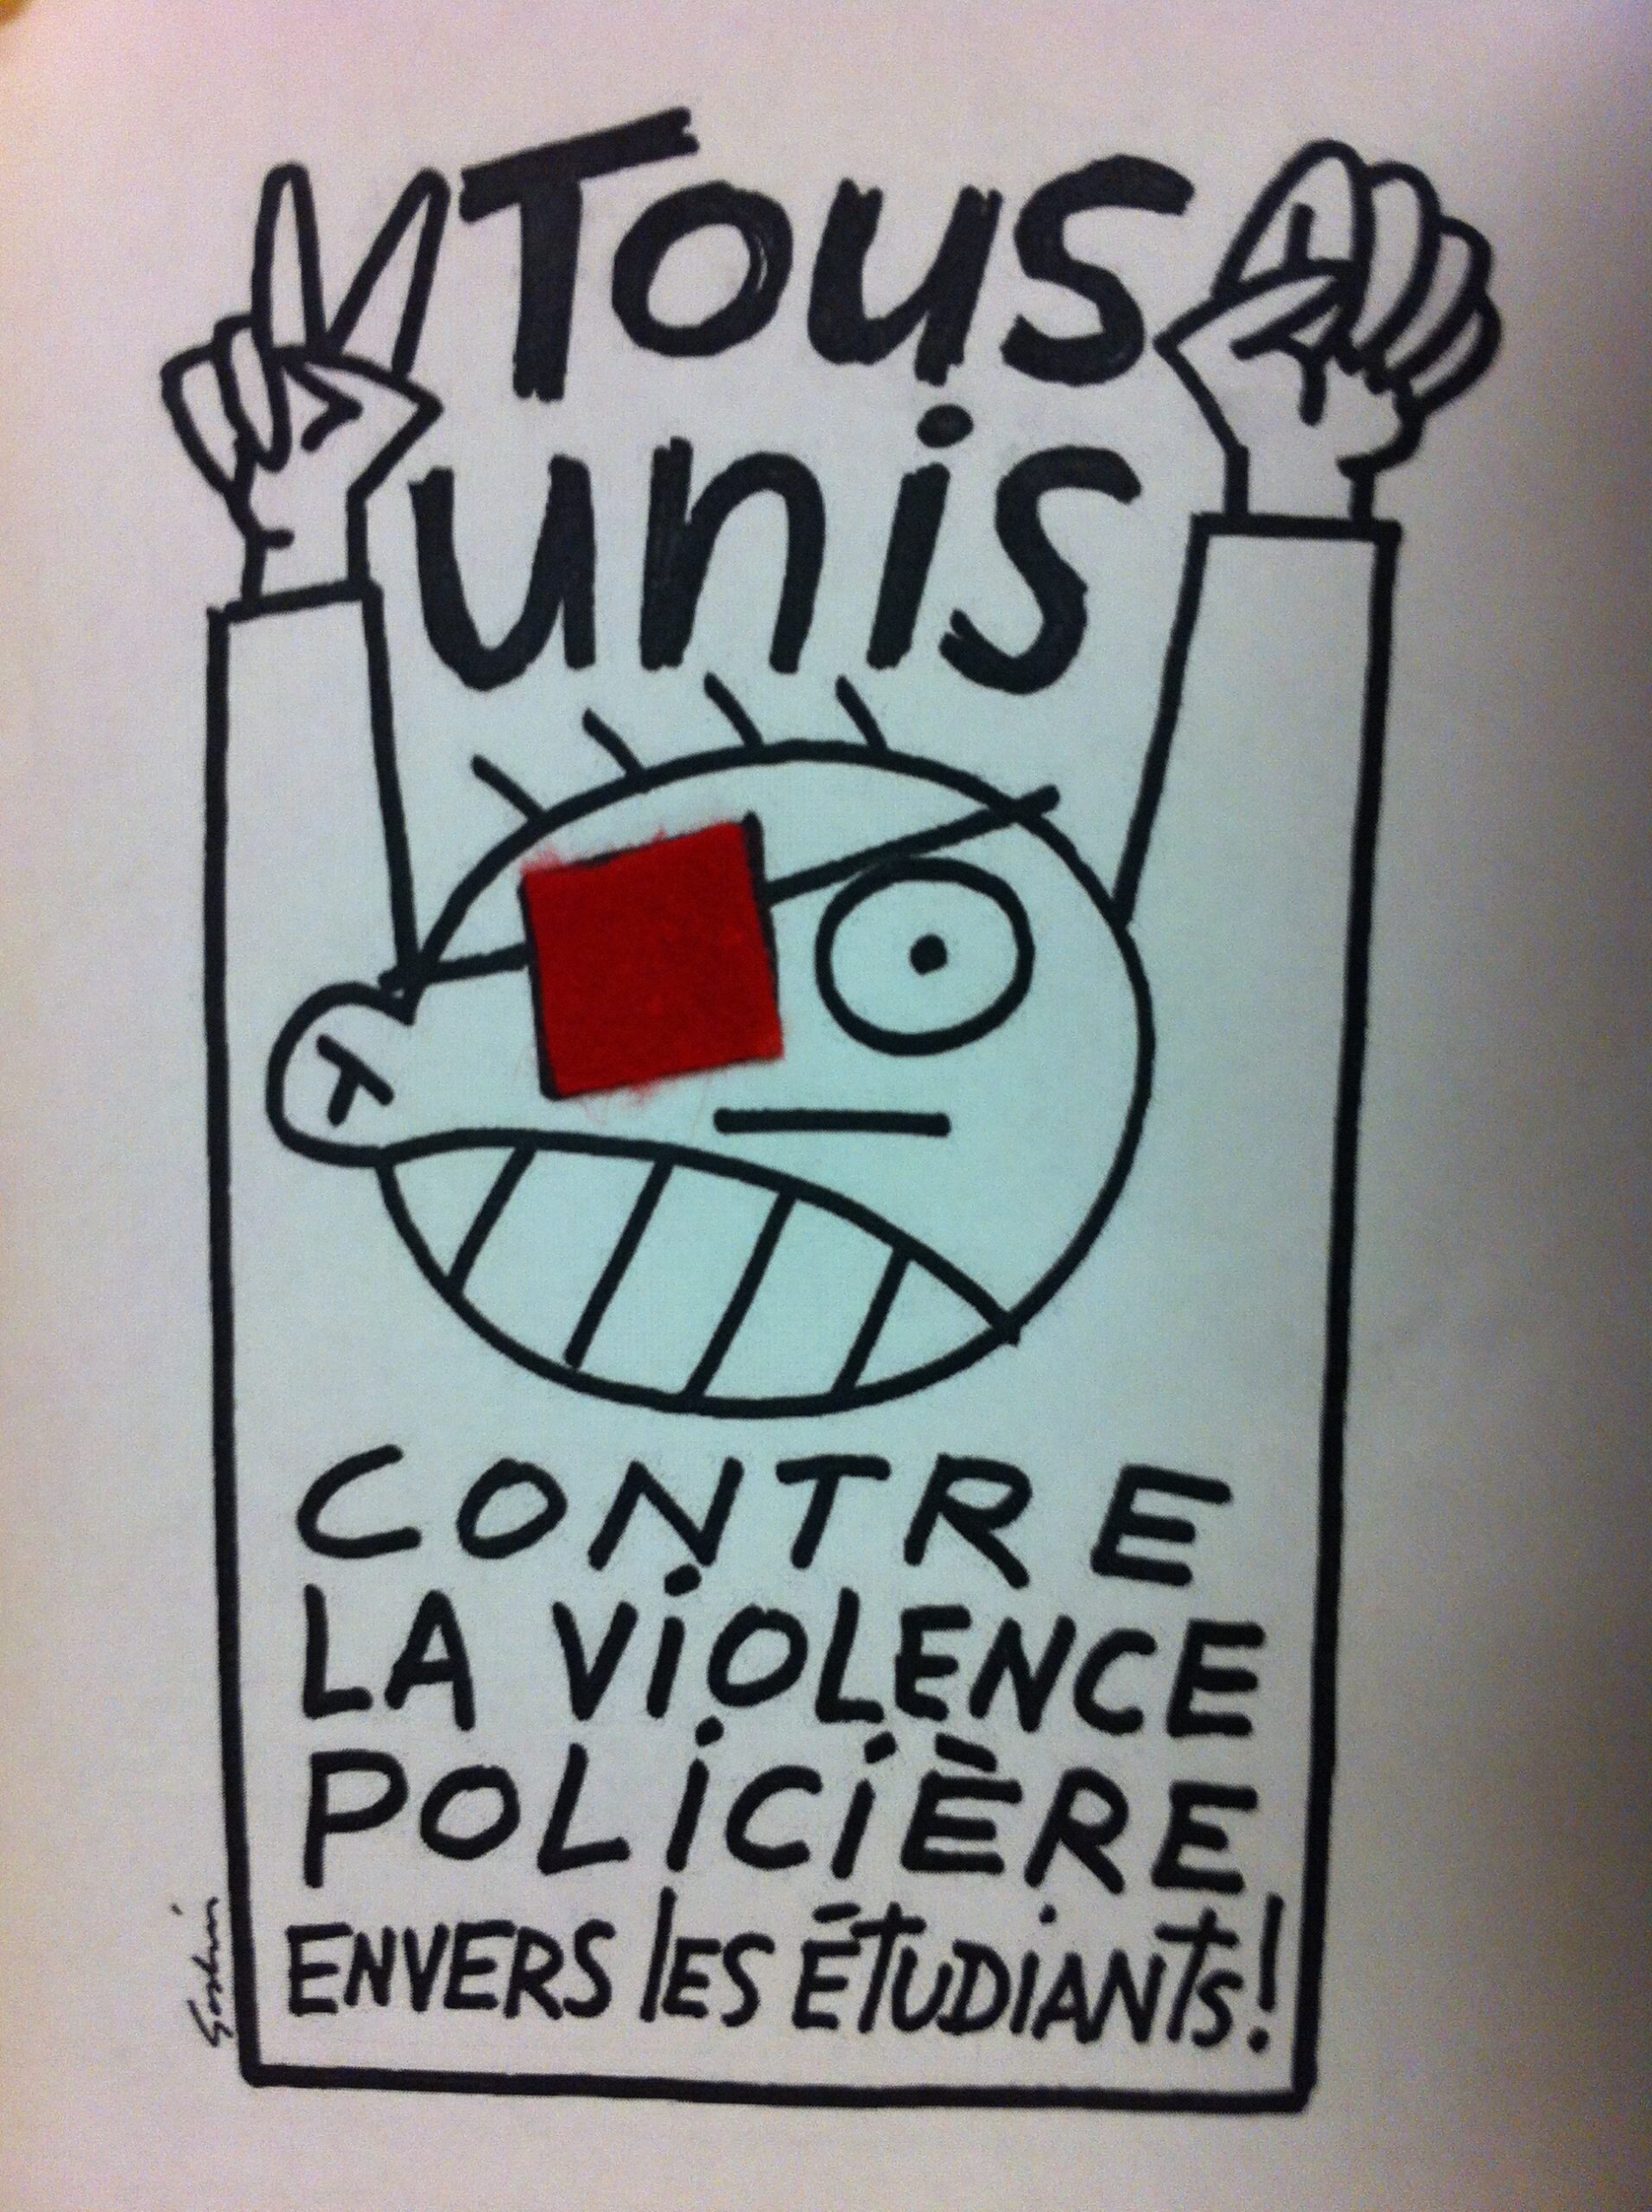 Tous
unis
CONTRE
LA ViOLENCE
POLiCiÈRE
ENVERS lES ÉtUDiANts!